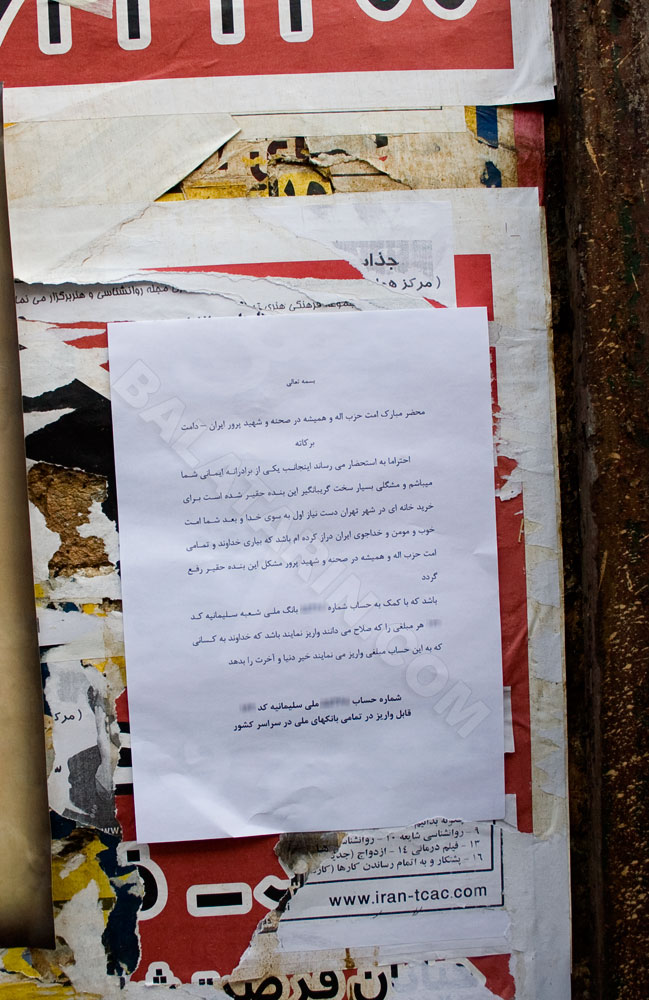 جذاب
(مرکز
مجله روانشناسی و هنر برگزار می نماید
فرهنگی هنری
بسمه تعالی
محضر مبارک امت حزب اله و همیشه در صحنه و شهید پرور ایران – دامت
برکاته
احتراما به استحضار می رساند اینجانب یکی از برادرانه ایمانی شما
میباشم و مشگلی بسیار سخت گریبانگیر این بنده حقیر شده است برای
خرید خانه ای در شهر تهران دست نیاز اول به سوی خدا و بعد شما امت
خوب و مومن و خداجوی ایران دراز کرده ام باشد که بیاری خداوند و تمامی
امت حزب اله و همیشه در صحنه و شهید پرور مشکل این بنده حقیر رفع
گردد
باشد که با کمک به حساب شماره بانگ ملی شعبه سلیمانیه کد
هر مبلغی را که صلاح می دانند واریز نمایند باشد که خداوند به کسانی
که به این حساب مبلغی واریز می نمایند خیر دنیا و آخرت را بدهد
شماره حساب ملی سلیمانیه کد
قابل واریز در تمامی بانکهای ملی در سراسر کشور
BALATARIN.COM
(مرکز
www.
بدانیم
۹ - روانشناسی شایعه ۱۰ - روانشناسی
۱۳ - فیلم درمانی ۱۴ - ازدواج (جدید
۱۶ - پشتکار و به اتمام رساندن کارها (کار
www.iran-tcac.com
فرصت